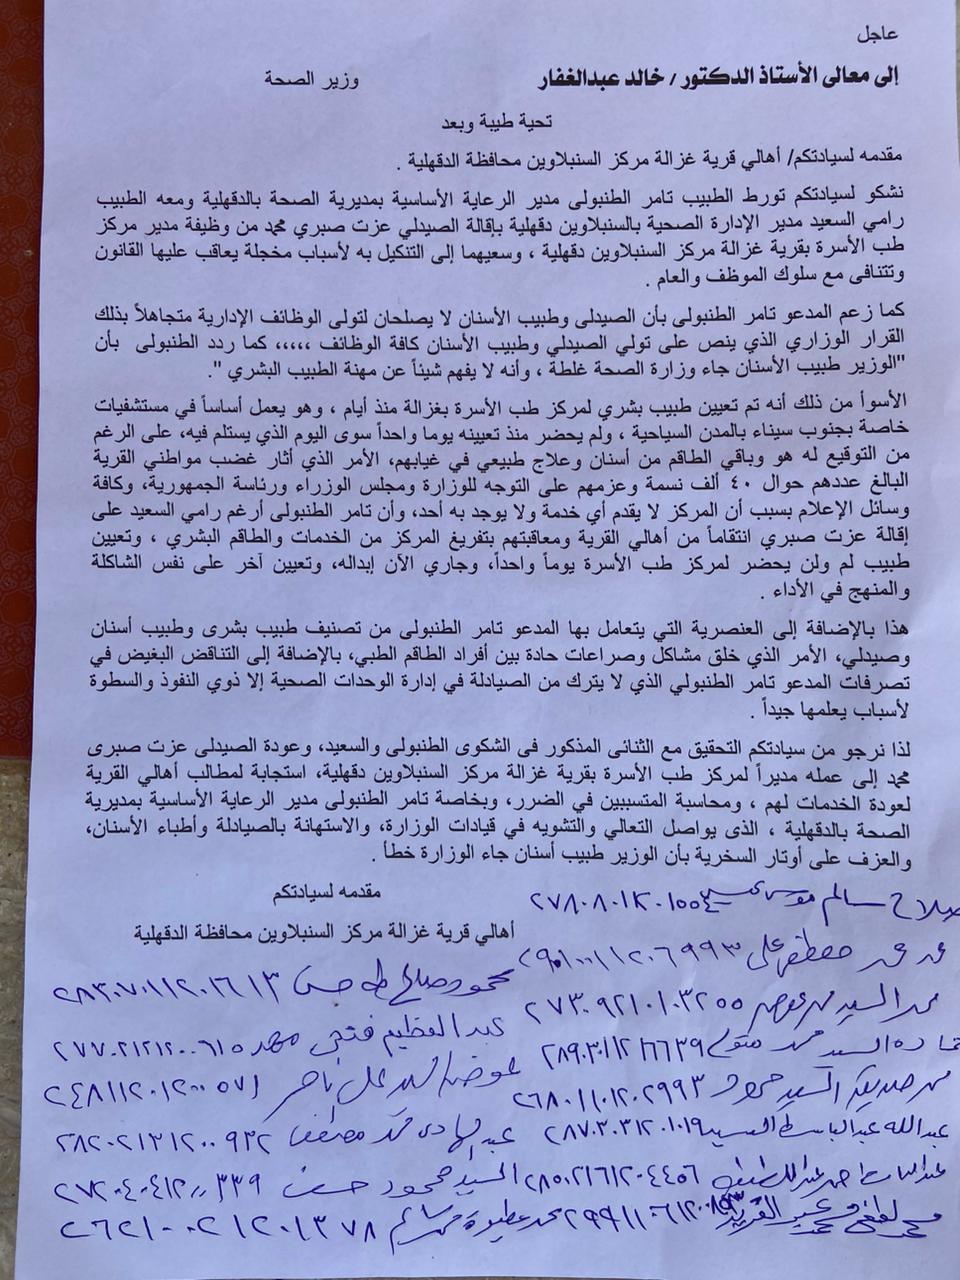 عاجل
إلى معالى الأستاذ الدكتور / خالد عبدالغفار وزير الصحة
تحية طيبة وبعد
مقدمه لسيادتكم/ أهالي قرية غزالة مركز السنبلاوين محافظة الدقهلية .
نشكو لسيادتكم تورط الطبيب تامر الطنبولى مدير الرعاية الأساسية بمديرية الصحة بالدقهلية ومعه الطبيب
رامي السعيد مدير الإدارة الصحية بالسنبلاوين دقهلية بإقالة الصيدلي عزت صبري محمد من وظيفة مدير مركز
طب الأسرة بقرية غزالة مركز السنبلاوين دقهلية ، وسعيهما إلى التنكيل به لأسباب مخجلة يعاقب عليها القانون
وتتنافى مع سلوك الموظف والعام .
كما زعم المدعو تامر الطنبولى بأن الصيدلى وطبيب الأسنان لا يصلحان لتولى الوظائف الإدارية متجاهلاً بذلك
القرار الوزاري الذي ينص على تولي الصيدلي وطبيب الأسنان كافة الوظائف ،،،،، كما ردد الطنبولى بأن
"الوزير طبيب الأسنان جاء وزارة الصحة غلطة ، وأنه لا يفهم شيئاً عن مهنة الطبيب البشري ".
الأسوأ من ذلك أنه تم تعيين طبيب بشري لمركز طب الأسرة بغزالة منذ أيام ، وهو يعمل أساساً في مستشفيات
خاصة بجنوب سيناء بالمدن السياحية ، ولم يحضر منذ تعيينه يوما واحداً سوى اليوم الذي يستلم فيه، على الرغم
من التوقيع له هو وباقي الطاقم من أسنان وعلاج طبيعي في غيابهم، الأمر الذي أثار غضب مواطني القرية
البالغ عددهم حوال ٤٠ ألف نسمة وعزمهم على التوجه للوزارة ومجلس الوزراء ورئاسة الجمهورية، وكافة
وسائل الإعلام بسبب أن المركز لا يقدم أي خدمة ولا يوجد به أحد، وأن تامر الطنبولى أرغم رامي السعيد على
إقالة عزت صبري انتقاماً من أهالي القرية ومعاقبتهم بتفريغ المركز من الخدمات والطاقم البشري ، وتعيين
طبيب لم ولن يحضر لمركز طب الأسرة يوماً واحداً، وجاري الآن إبداله، وتعيين آخر على نفس الشاكلة
والمنهج في الأداء .
هذا بالإضافة إلى العنصرية التي يتعامل بها المدعو تامر الطنبولى من تصنيف طبيب بشرى وطبيب أسنان
وصيدلي، الأمر الذي خلق مشاكل وصراعات حادة بين أفراد الطاقم الطبي، بالإضافة إلى التناقض البغيض في
تصرفات المدعو تامر الطنبولي الذي لا يترك من الصيادلة في إدارة الوحدات الصحية إلا ذوي النفوذ والسطوة
لأسباب يعلمها جيداً .
لذا نرجو من سيادتكم التحقيق مع الثنائى المذكور فى الشكوى الطنبولى والسعيد، وعودة الصيدلى عزت صبرى
محمد إلى عمله مديراً لمركز طب الأسرة بقرية غزالة مركز السنبلاوين دقهلية، استجابة لمطالب أهالي القرية
لعودة الخدمات لهم ، ومحاسبة المتسببين في الضرر، وبخاصة تامر الطنبولى مدير الرعاية الأساسية بمديرية
الصحة بالدقهلية ، الذى يواصل التعالي والتشويه في قيادات الوزارة، والاستهانة بالصيادلة وأطباء الأسنان،
والعزف على أوتار السخرية بأن الوزير طبيب أسنان جاء الوزارة خطأ .
مقدمه لسيادتكم
أهالي قرية غزالة مركز السنبلاوين محافظة الدقهلية
صلاح سالم
مصطفى على
محمود صلاح طه حسن
محمد السيد
عبد العظيم فتحى
حماده السيد محمد متولى
عوض السيد على
السيد
عبدالله عبدالباسط السيد
عبد الهادى محمد مصطفى
السيد محمود حسن
محمد عطيوة